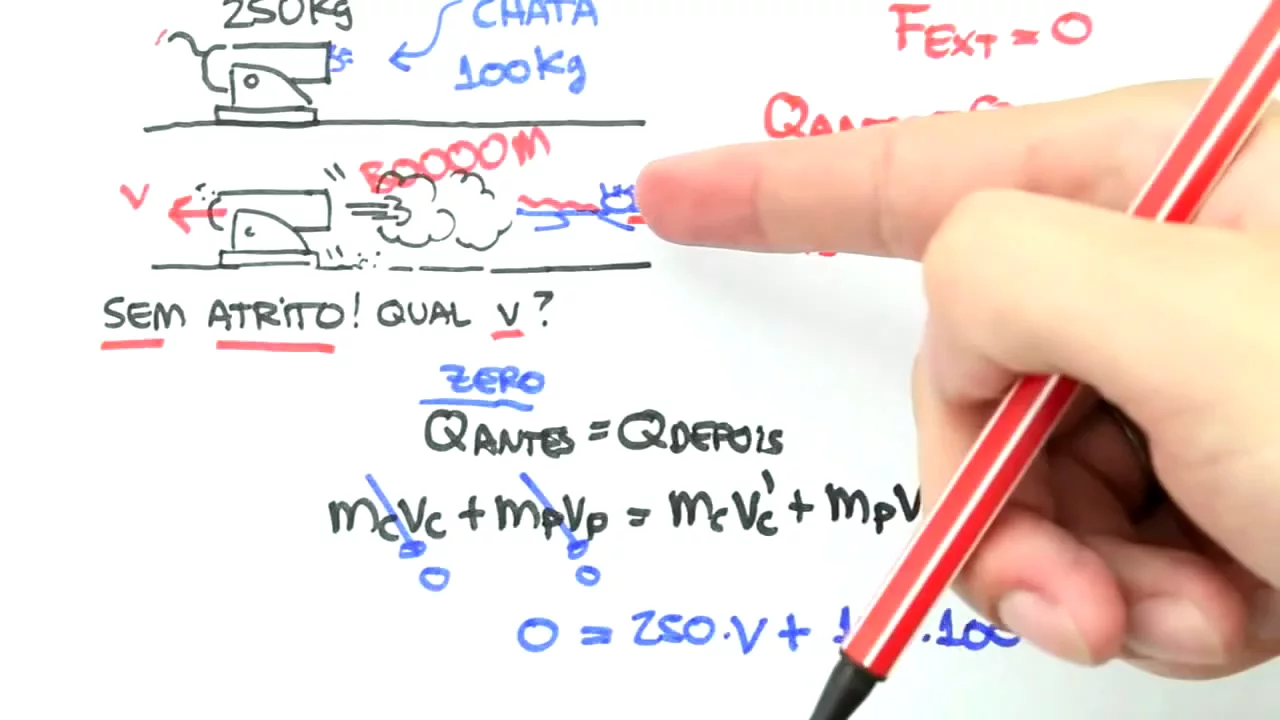 250Kg
CHATA
100Kg
FEXT = 0
QAN
BOOOOM
V
SEM ATRITO! QUAL V?
ZERO
QANTES = QDEPOIS
mcVc + mpVp = mcVc' + mpV
0 0
0 = 250.V + 1 .100